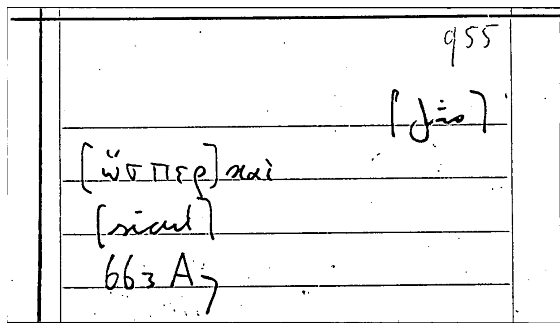 955
[ὥσπερ] καὶ
[sicut]
663 A 7